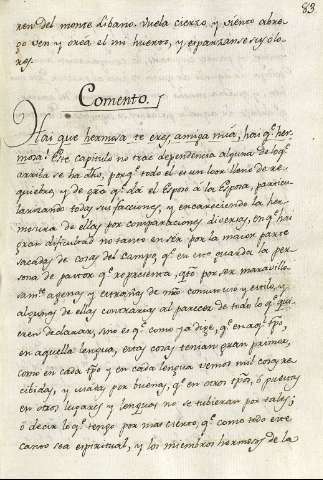 83
ren del monte Libano. Vuela cierzo, y viento abre-
go ven y orèa el mi huerto, y espanzanse sus olo-
res.
Comento.
Hai que hermosa te eres, amiga mia, hai q.e her-
mosa! Este capitulo no trae dependencia alguna de lo q.e
arriba se ha dho, porq.e todo el es un loor lleno de re-
quiebro, y de gra q.e da el Esposo a la Esposa, particu-
larizando todas sus facciones, y encareciendo la her-
mosura de ellas por comparaciones diversas, en q.e hai
gran dificultad no tanto en ser por la maior parte
sacadas de cosas del campo, q.e en esto guarda la per-
sona de pastor q.e representa, q.to por ser maravillo-
sam.te agenas, y estrañas de nro comun uso y estilo, y
algunas de ellas contrarias al parecer de todo lo q.e qui-
eren declarar, sino es q.e como ya dige, q.e en aq.l tpo,
en aquella lengua, estas cosas tenian gran primor,
como en cada tpo y en cada lengua vemos mil cosas re-
cibidas, y usadas por buenas, q.e en otros tpos, ò puestas
en otros lugares y lenguas no se tubieran por tales;
ò decir lo q.e tengo por mas cierto, q.e como todo este
canto sea espiritual, y los miembros hermosos de la